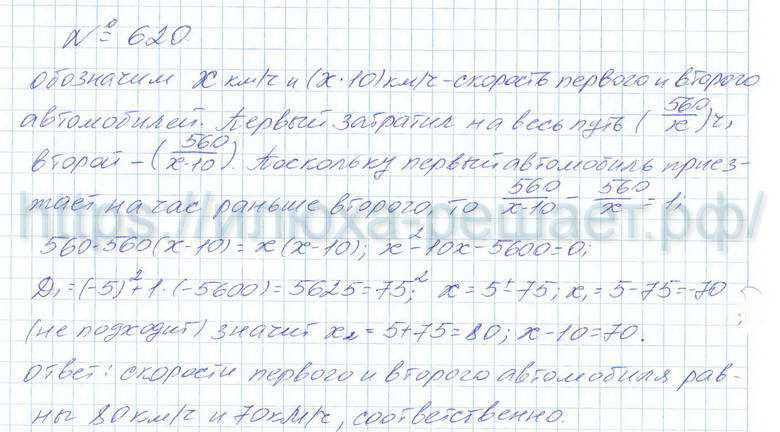 № 620.
обозначим x км/ч и (x·10) км/ч - скорость первого и второго
автомобилей. Первый затратил на весь путь (560/x) ч,
второй - (560/x·10). Поскольку первый автомобиль приез-
жает на час раньше второго, то 560/x-10 - 560/x = 1;
560-560(x-10) = x(x-10); x²-10x-5600=0;
D₁=(-5)²+1·(-5600)=5625=75²; x=5±75; x₁=5-75=-70
(не подходит) значит x₂=5+75=80; x-10=70.
ответ: скорости первого и второго автомобиля рав-
ны 80км/ч и 70км/ч, соответственно.
https://илюха-решает.рф/